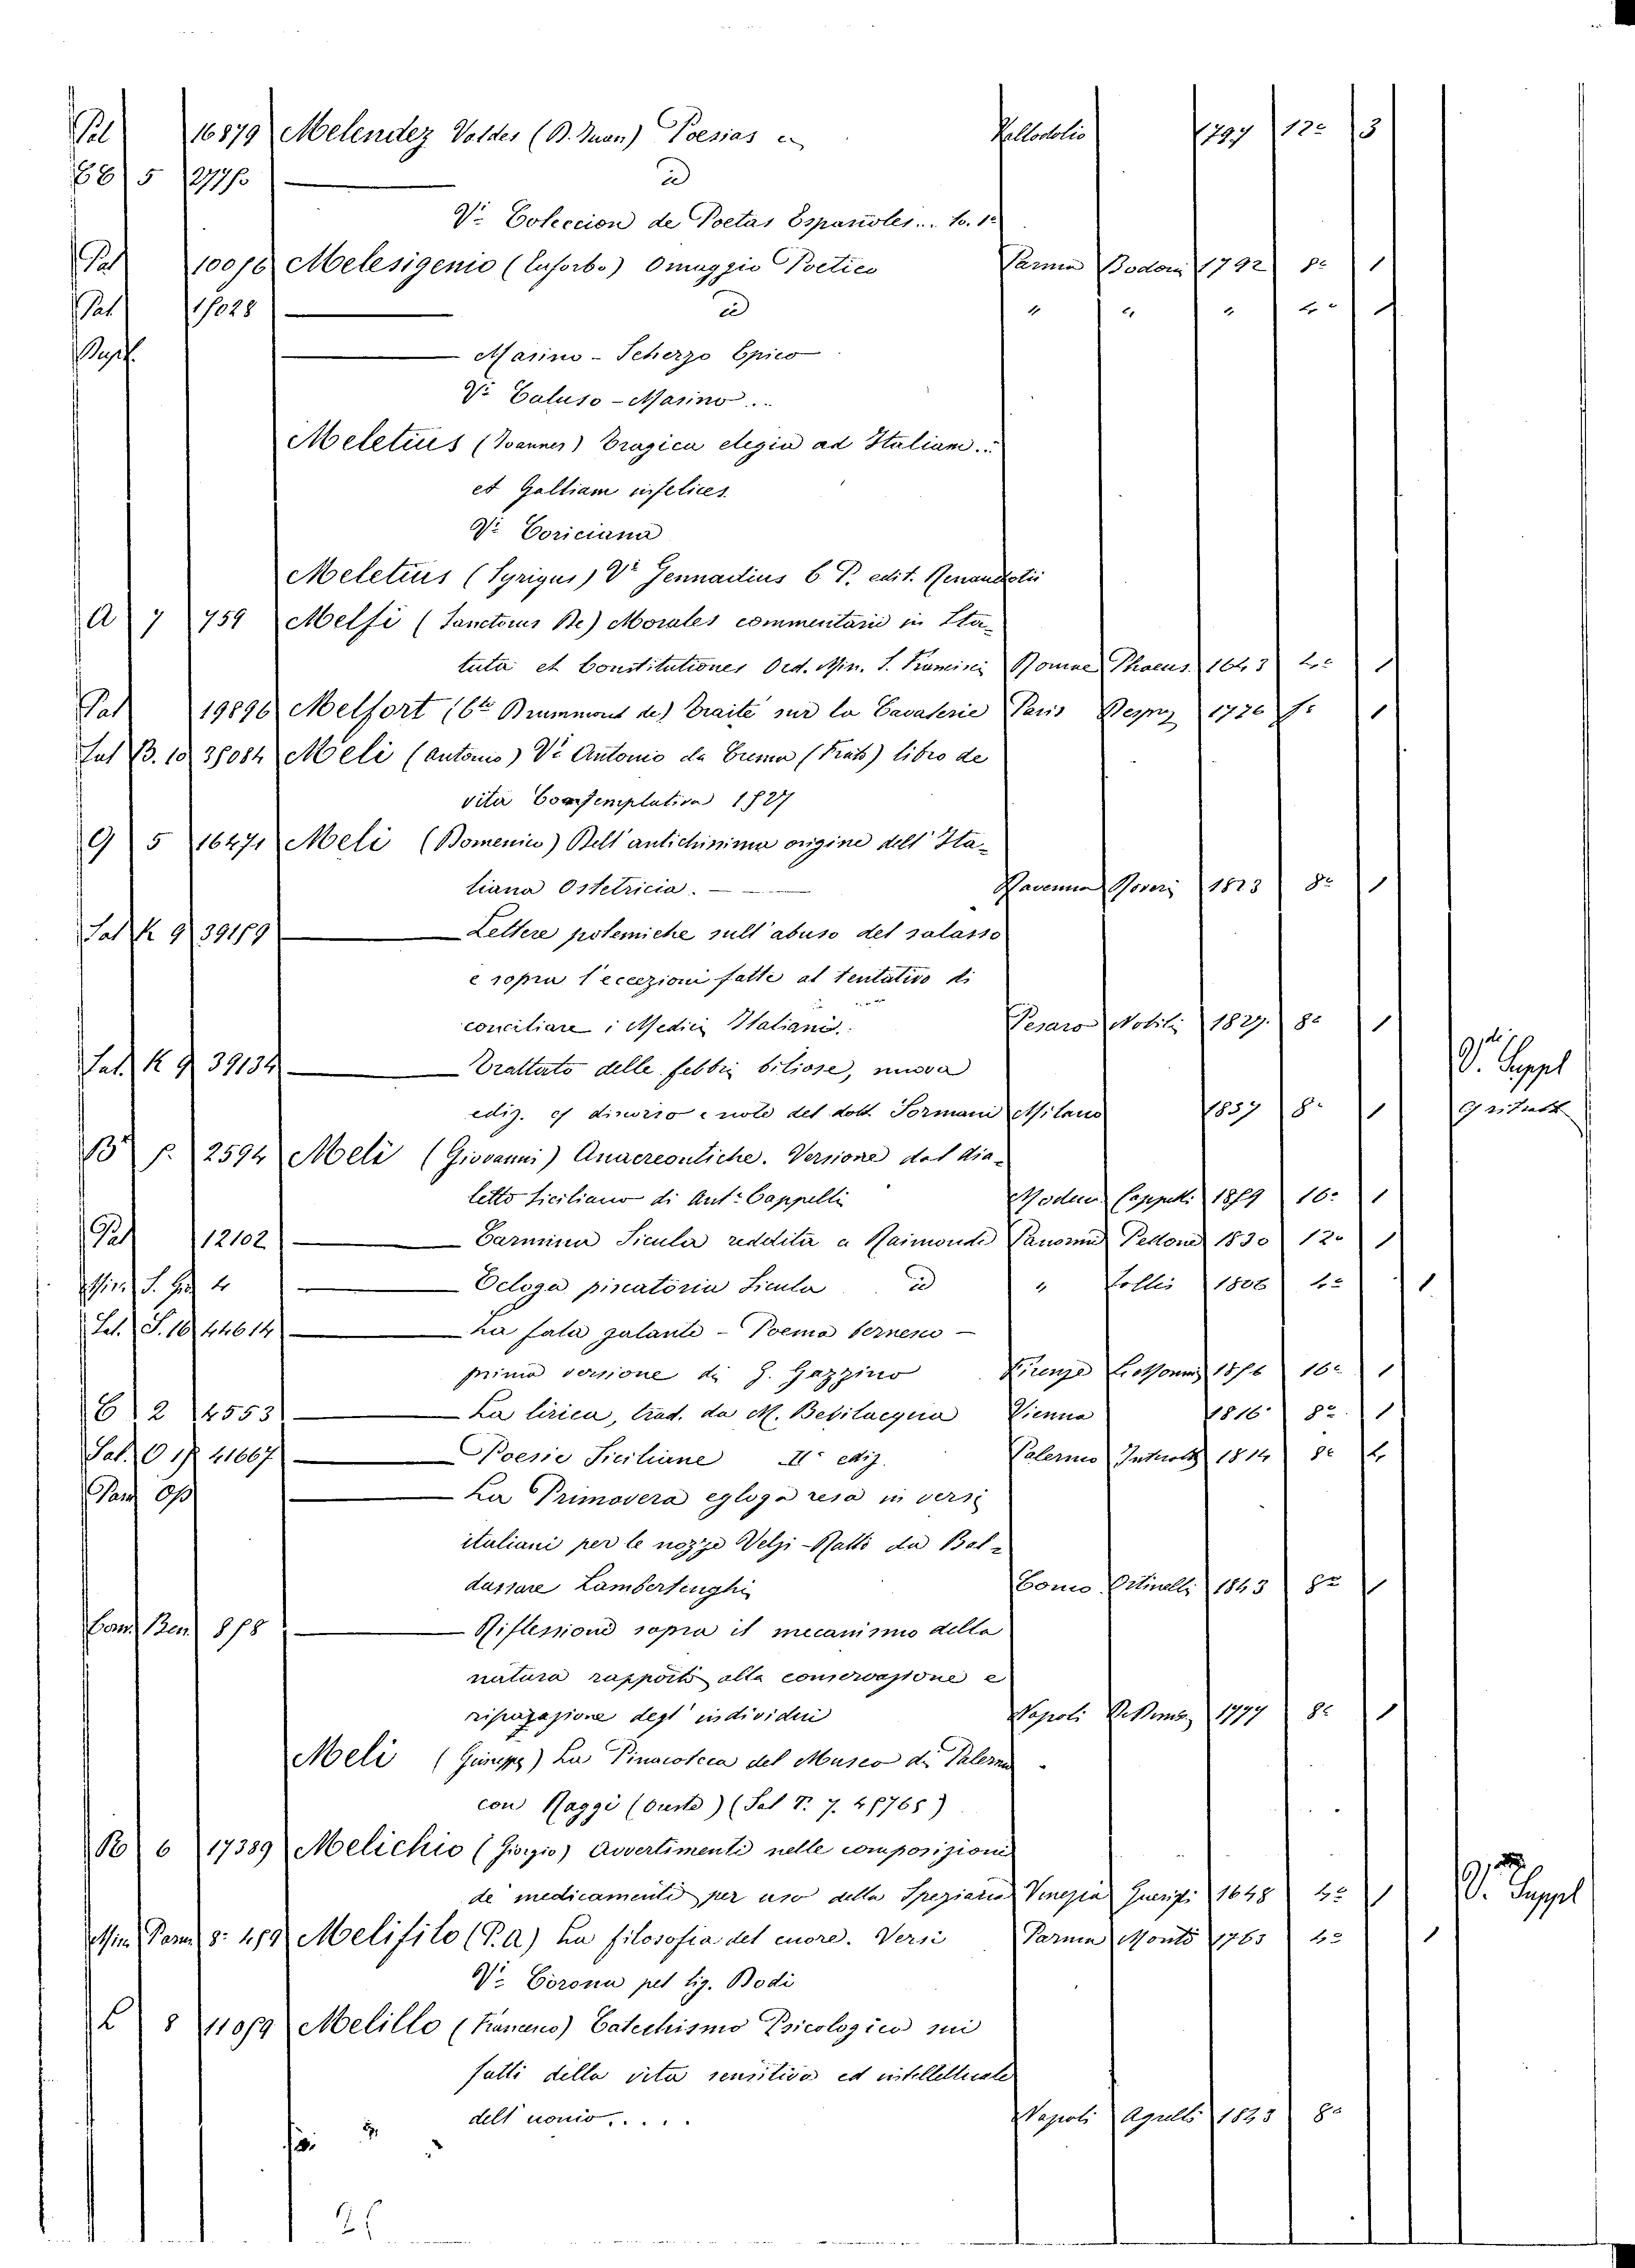 Pal 16879 Melendez Valdes (D. Juan) Poesias Valladolid 1797 12º 3
BB 5 id
Vº Coleccion de Poetas Espanoles... to. 1º
Pal Melesigenio (Euforbo) Omaggio Poetico Parma Bodoni 1792 8º 1
Pal id " " " 4º 1
Suppl. Masino - Scherzo Epico
Vº Caluso - Masino...
Meletius (Joannes) Tragica elegia ad Italiam...
et Galliam infelices
Vº Coriciana
Meletius (Syrigus) Vº Gennadius C. P. edit. Renaudotii
A 7 759 Melfi (Sanctorus De) Morales commentarii in Sta-
tuta et Constitutiones Ord. Min. S. Francisci Romae Phaeus. 1643 4º 1
Pal 19896 Melfort (Cte Drummont de) Traité sur la Cavalerie Paris Desprez 1776 fº 1
Sal B. 10 Meli (Antonio) Vº Antonio da Crema (Frate) libro de
vita Contemplativa 1527
G 5 16471 Meli (Domenico) Dell' antichissima origine dell' Ita-
liana Ostetricia. Ravenna Roveri 1823 8º 1
Sal K 9 39159 Lettere polemiche sull' abuso del salasso
e sopra l'eccezioni fatte al tentativo di
conciliare i Medici Italiani. Pesaro Nobili 1827. 8º 1
Sal. K 9 39134 Trattato delle febbri biliose, nuova
ediz. c/ discorso e note del dott. Sormani Milano 1837 8º 1
Vdi Suppl
B 2594 Meli (Giovanni) Anacreontiche. Versione dal dia-
letto siciliano di Ant: Cappelli Modena Cappelli 1859 16º 1
Pal 12102 Carmina Sicula reddita a Raimondi Panormi 1830 12º 1
Ecloga piscatoria Sicula id " Sollii 1806 4º 1
Sal. S. 10 44614 La fata galante - Poema bernesco -
prima versione di G. Gazzino Firenze 16º 1
2 4553 La lirica, trad. da M. Bevilacqua Vienna 1816 8º 1
Sal. O 41667 Poesie Siciliane IIª ediz. Palermo 1814 8º
La Primavera egloga resa in versi
italiani per le nozze Velzi-Ratti da Bal-
dassare Lambertenghi Como Ostinelli 1843 8º 1
858 Riflessioni sopra il mecanismo della
natura rapporto alla conservazione e
riparazione degl' individui Napoli 1777 8º 1
Meli (Giuseppe) La Pinacoteca del Museo di Palermo
con Raggi (Oreste) (Sal V. 7. 45765)
6 17389 Melichio (Giorgio) Avvertimenti nelle composizioni
de' medicamenti per uso della Spezieria Venezia Guerigli 1648 4º 1 V. Suppl
Min. Parm. 8: Melifilo (P.A) La filosofia del cuore. Versi Parma Monti 1763 4º 1
Vº Corona pel sig. Bodi
L 8 11059 Melillo (Francesco) Catechismo Psicologico sui
fatti della vita sensitiva ed intellettuale
dell' uomo..... Napoli Agrelli 1843 8º